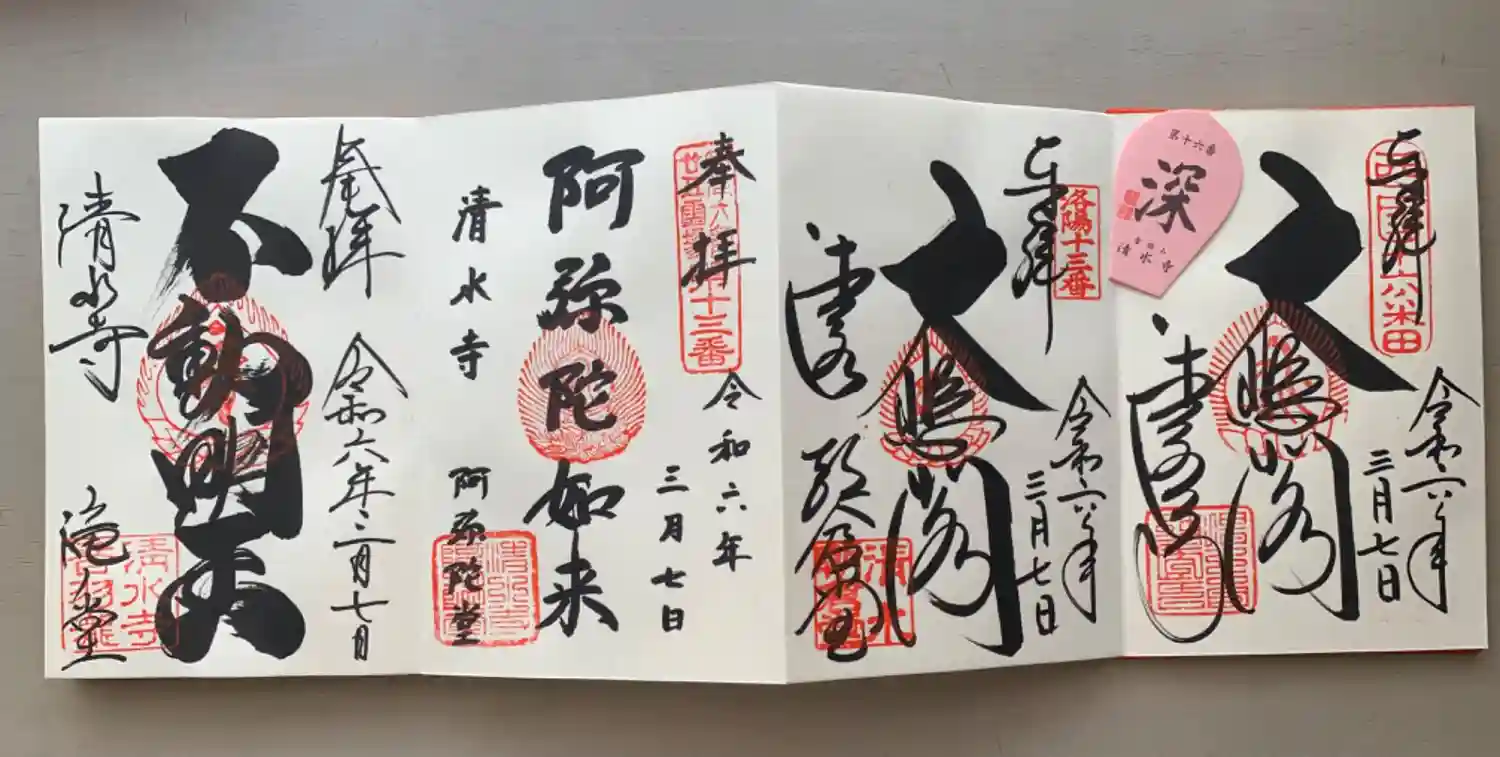 奉拝
令和六年
三月七日
大悲閣
清水寺
第十六番
深
音羽山
清水寺
奉拝
洛陽十三番
令和六年
三月七日
大悲閣
清水
奉拝
十三番
令和六年
三月七日
阿弥陀如来
清水寺
阿弥陀堂
奉拝
令和六年三月七日
不動明王
清水寺
滝堂
清水寺